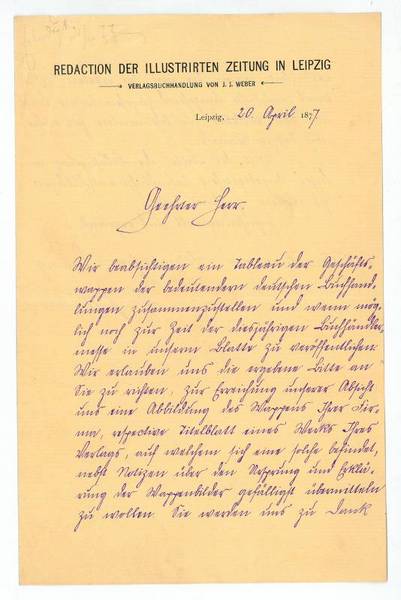 REDACTION DER ILLUSTRIRTEN ZEITUNG IN LEIPZIG
VERLAGSBUCHHANDLUNG VON J. J. WEBER
Leipzig, 20. April 1877
Geehrter Herr.
Wir beabsichtigen ein Tableau der Geschäfts-
wappen der bedeutendern deutschen Buchhand-
lungen zusammenzustellen und wenn mög-
lich noch zur Zeit der diesjährigen Buchhändler-
messe in unserm Blatte zu veröffentlichen.
Wir erlauben uns die ergebene Bitte an
Sie zu richten, zur Erreichung unserer Absicht
uns eine Abbildung des Wappens Ihrer Fir-
ma, respective Titelblatt eines Werks Ihres
Verlags, auf welchem sich eine solche befindet,
nebst Notizen über den Ursprung und Erklä-
rung der Wappenbilder gefälligst übermitteln
zu wollen. Sie werden uns zu Dank